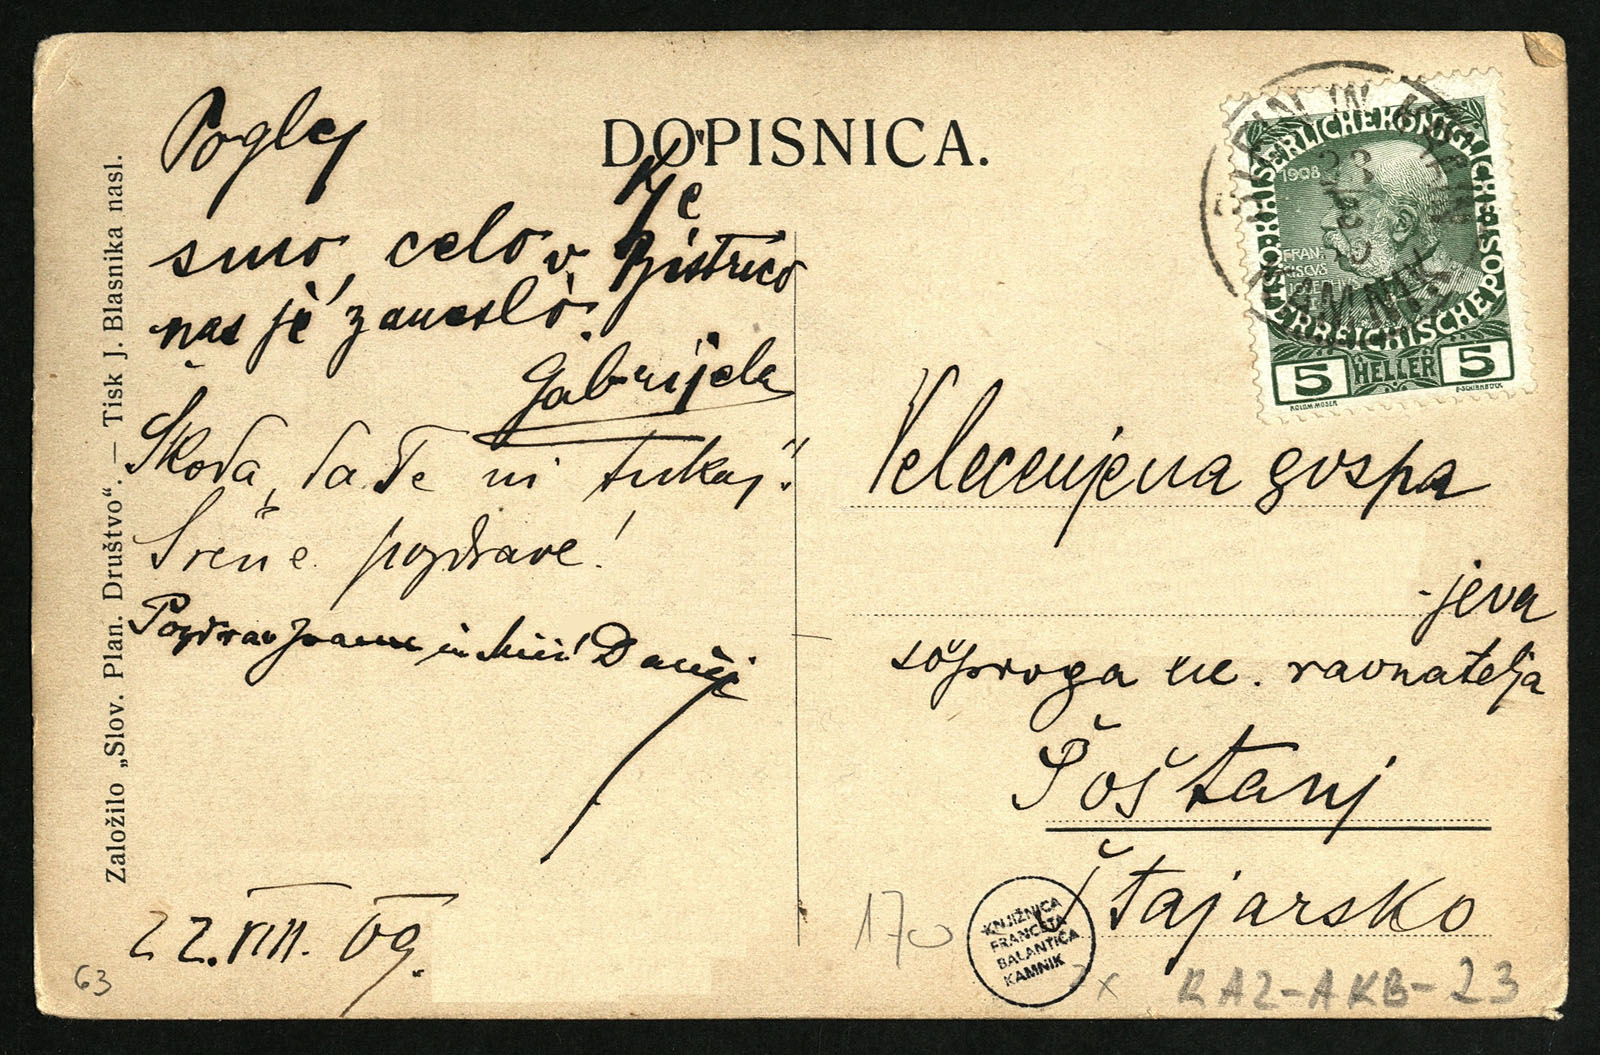 DOPISNICA.
Poglej
kje
smo, celo v Bistrico
nas je zaneslo.
Gabrijela
Škoda, da Te ni tukaj!
Srčne pozdrave!
Pozdrav in Danica
22. VIII. 09.
Založilo „Slov. Plan. Društvo“. — Tisk J. Blasnika nasl.
KAISERLICHE KÖNIGLICHE POST
ÖSTERREICHISCHE
1908
FRAN
CISCVS
JOSEPH
5 HELLER 5
KOLOM. MOSER
F. SCHIRNBÖCK
STEIN IN KRAIN
KAMNIK
Velecenjena gospa
-jeva
soproga nč. ravnatelja
Šoštanj
Štajarsko
KNJIŽNICA
FRANCETA
BALANTIČA
KAMNIK
170
63
RAZ-AKB-23